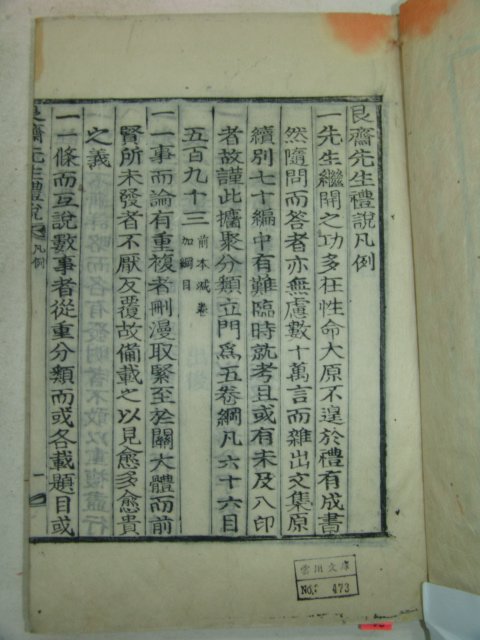 艮齋先生禮說凡例
一先生繼開之功多在性命大原不遑於禮有成書
然隨問而答者亦無慮數十萬言而雜出文集原
續別七十編中有難臨時就考且或有未及入印
者故謹此攟聚分類立門爲五卷綱凡六十六目
五百九十三 前本減卷加綱目
一一事而論有重複者刪漫取緊至於關大體而前
賢所未發者不厭反覆故備載之以見愈多愈貴
之義
一一條而互說數事者從重分類而或各載題目或
艮齋先生禮說 凡例
一
雲川文庫
No. 473